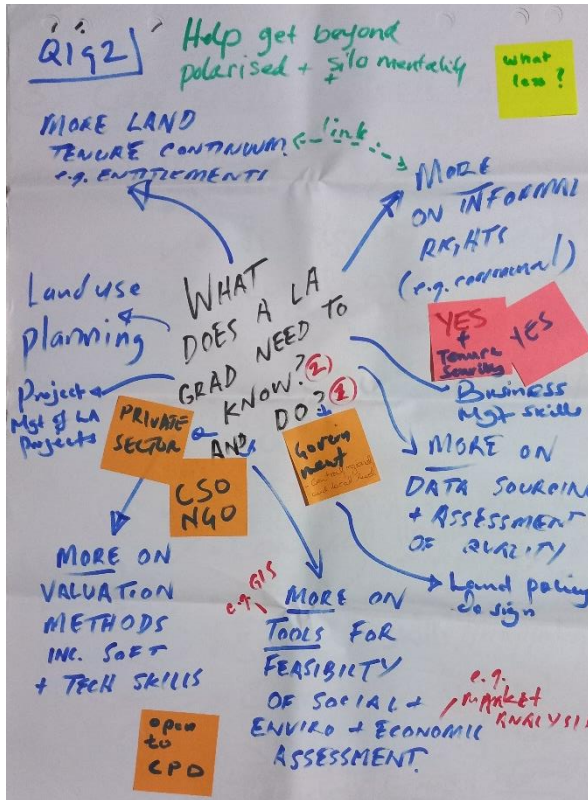 Q1g2
Help get beyond
polarised + silo mentality
+
What
less?
MORE LAND
TENURE CONTINUUM.
e.g. ENTITLEMENTS
link
MORE
ON INFORMAL
RIGHTS
(e.g. communal)
YES
+
Tenure
Security
YES
Land use
planning
WHAT
DOES A LA
GRAD NEED TO
KNOW? (2)
AND DO? (1)
Project
Mgt of LA
Projects
PRIVATE
SECTOR
CSO
NGO
Govern
ment
Business
Mgt skills
MORE ON
DATA SOURCIN
+ ASSESSMENT
OF QUALITY
Land policy
design
MORE ON
VALUATION
METHODS
INC. SOFT
+ TECH SKILLS
e.g. GIS
MORE ON
TOOLS FOR
FEASIBILTY
OF SOCIAL +
ENVIRO + ECONOMIC
ASSESSMENT.
e.g.
MARKET
ANALYSI
open
to
CPD